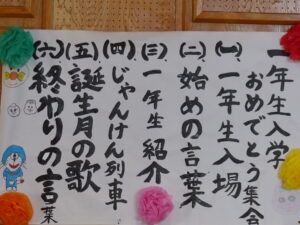 一年生入学
おめでとう集会
(一)一年生入場
(二)始めの言葉
(三)一年生紹介
(四)じゃんけん列車
(五)誕生月の歌
(六)終わりの言葉